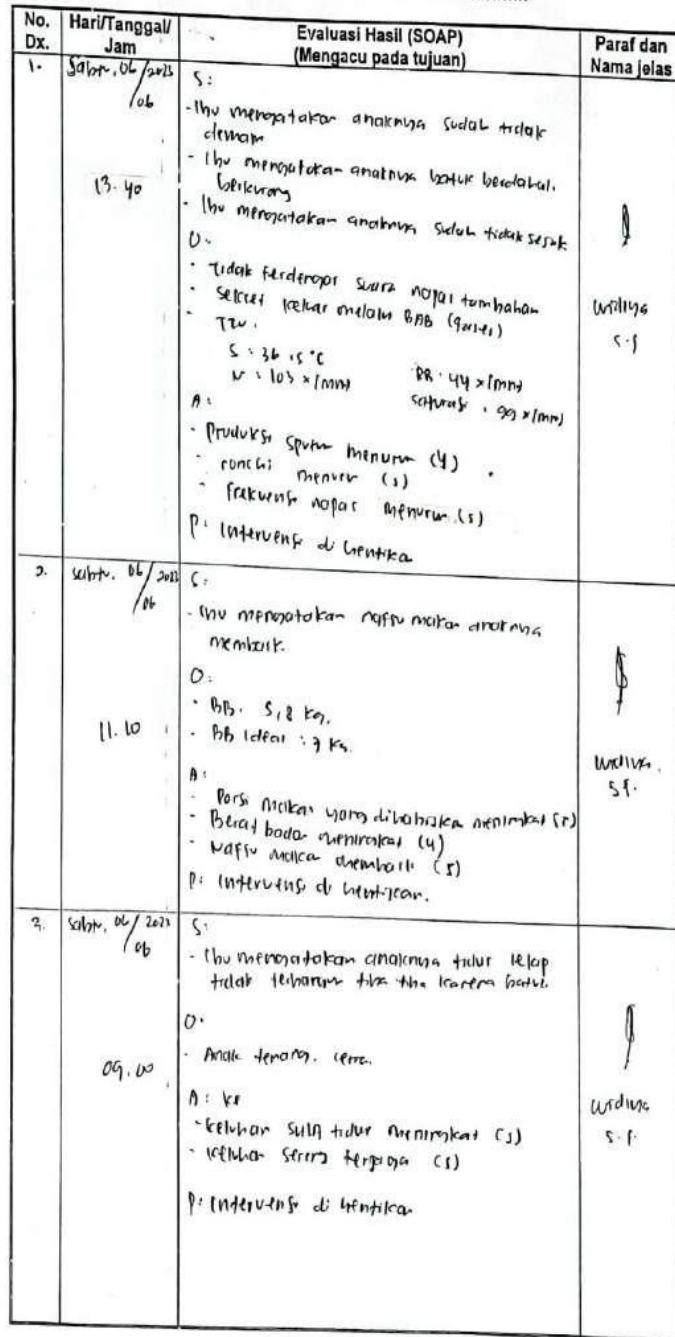 No. Dx.
Hari/Tanggal/ Jam
Evaluasi Hasil (SOAP)
(Mengacu pada tujuan)
Paraf dan Nama jelas
1.
Sabtu, 06/2023
/06
13.40
S:
- Ibu mengatakan anaknya sudah tidak
demam
- Ibu mengatakan anaknya batuk berdahak
berkurang
- Ibu mengatakan anaknya sudah tidak sesak
O:
- Tidak terdengar suara napas tambahan
- Sekret keluar melalui BAB
- TTV.
S : 36,5 °C RR : 44 x/mnt
N : 103 x/mnt Saturasi : 99 x/mnt
A:
- Produksi sputum menurun (4)
- ronchi menurun (5)
- frekuensi napas menurun (5)
P: Intervensi di hentika
Widiya
S.F
2.
Sabtu, 06/2023
/06
11.10
S:
- Ibu mengatakan nafsu makan anaknya
membaik.
O:
- BB. 5,8 Kg.
- BB Ideal : 7 Kg.
A:
- Porsi makan yang dihabiskan meningkat (5)
- Berat badan meningkat (4)
- Nafsu makan membaik (5)
P: Intervensi di hentikan.
Widiya.
S.F.
3.
Sabtu, 06/2023
/06
09.00
S:
- Ibu mengatakan anaknya tidur lelap
tidak terbangun tiba tiba karena batuk
O:
- Anak tenang.
A: ke
- keluhan sulit tidur meningkat (5)
- keluhan sering terjaga (5)
P: Intervensi di hentika
Widiya
S.F.